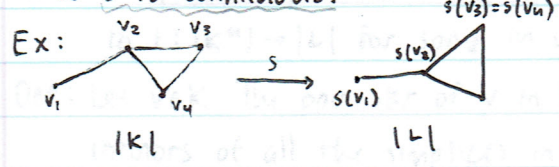 Ex:
v₂ v₃
v₁ v₄
|K|
s
s(v₃)=s(v₄)
s(v₂)
s(v₁)
|L|